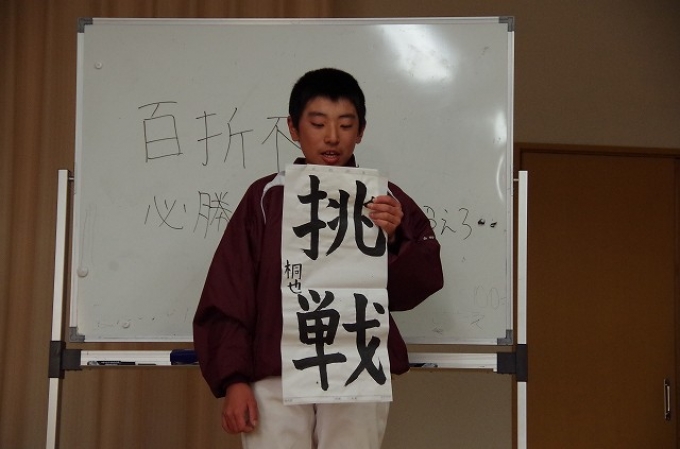 百折不
必勝
えろ・・
挑戦
桐也